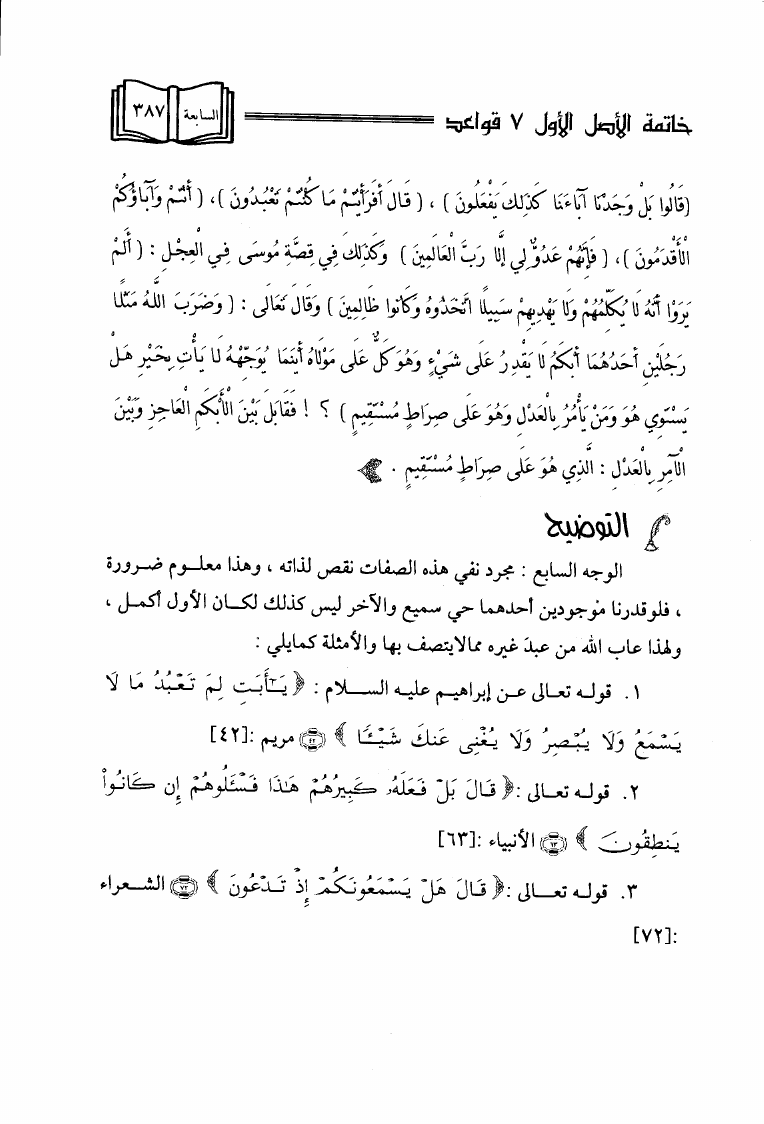 خاتمة الأصل الأول ٧ قواعد السابعة ٣٨٧
(قَالُوا بَلْ وَجَدْنَا آبَاءَنَا كَذَلِكَ يَفْعَلُونَ) ، (قَالَ أَفَرَأَيْتُمْ مَا كُنْتُمْ تَعْبُدُونَ)، (أَنْتُمْ وَآبَاؤُكُمُ
الْأَقْدَمُونَ)، (فَإِنَّهُمْ عَدُوٌّ لِي إِلَّا رَبَّ الْعَالَمِينَ) وَكَذَلِكَ فِي قِصَّةِ مُوسَى فِي الْعِجْلِ : (أَلَمْ
يَرَوْا أَنَّهُ لَا يُكَلِّمُهُمْ وَلَا يَهْدِيهِمْ سَبِيلًا اتَّخَذُوهُ وَكَانُوا ظَالِمِينَ) وَقَالَ تَعَالَى : (وَضَرَبَ اللَّهُ مَثَلًا
رَجُلَيْنِ أَحَدُهُمَا أَبْكَمُ لَا يَقْدِرُ عَلَى شَيْءٍ وَهُوَ كَلٌّ عَلَى مَوْلَاهُ أَيْنَمَا يُوَجِّهْهُ لَا يَأْتِ بِخَيْرٍ هَلْ
يَسْتَوِي هُوَ وَمَنْ يَأْمُرُ بِالْعَدْلِ وَهُوَ عَلَى صِرَاطٍ مُسْتَقِيمٍ) ؟ ! فَقَابَلَ بَيْنَ الْأَبْكَمِ الْعَاجِزِ وَبَيْنَ
الْآمِرِ بِالْعَدْلِ : الَّذِي هُوَ عَلَى صِرَاطٍ مُسْتَقِيمٍ .
التوضيح
الوجه السابع : مجرد نفي هذه الصفات نقص لذاته ، وهذا معلوم ضرورة
، فلوقدرنا موجودين أحدهما حي سميع والآخر ليس كذلك لكان الأول أكمل ،
ولهذا عاب الله من عبدَ غيره ممالايتصف بها والأمثلة كمايلي :
١. قوله تعالى عن إبراهيم عليه السلام : ﴿ يَٰٓأَبَتِ لِمَ تَعْبُدُ مَا لَا
يَسْمَعُ وَلَا يُبْصِرُ وَلَا يُغْنِى عَنكَ شَيْـًٔا ﴾ ٤٢ مريم :[٤٢]
٢. قوله تعالى :﴿ قَالَ بَلْ فَعَلَهُۥ كَبِيرُهُمْ هَٰذَا فَسْـَٔلُوهُمْ إِن كَانُوا۟
يَنطِقُونَ ﴾ ٦٣ الأنبياء :[٦٣]
٣. قوله تعالى :﴿ قَالَ هَلْ يَسْمَعُونَكُمْ إِذْ تَدْعُونَ ﴾ ٧٢ الشعراء
:[٧٢]